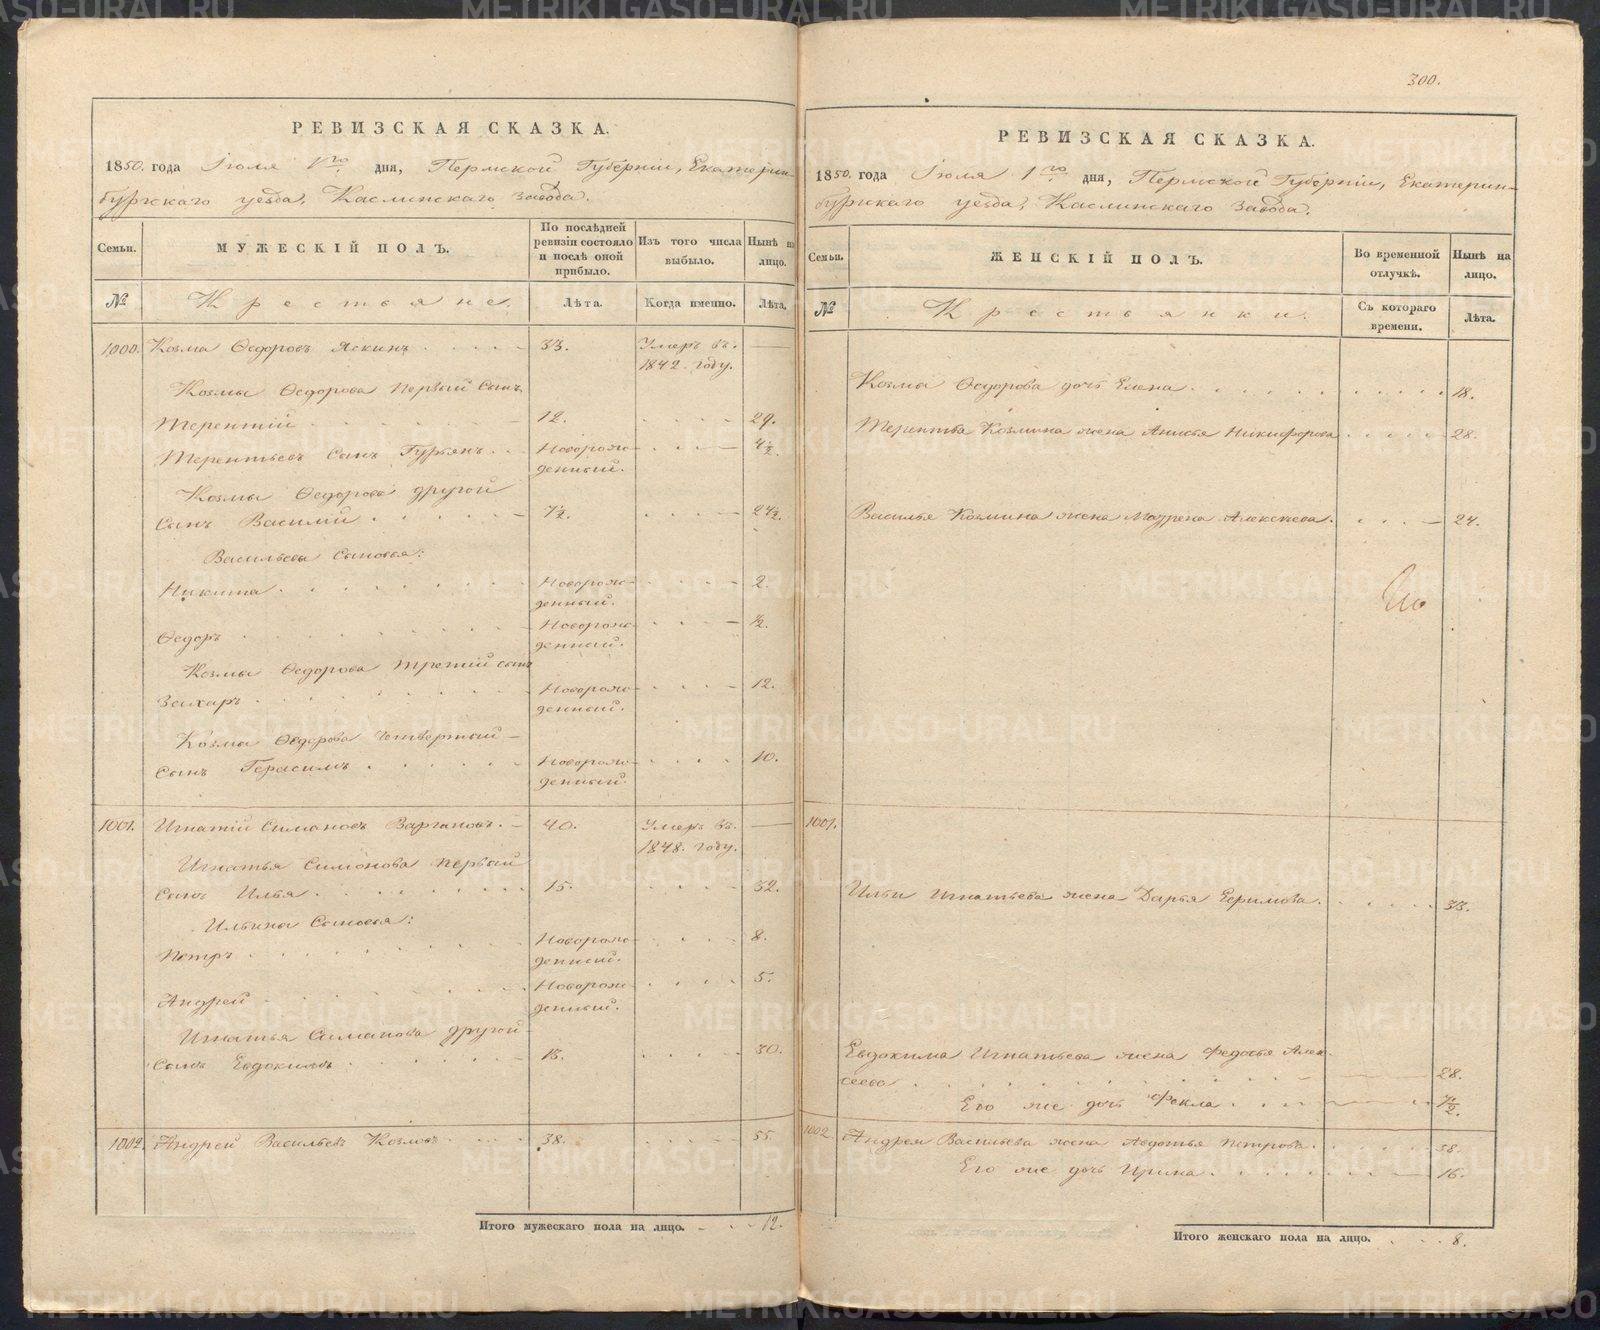 РЕВИЗСКАЯ СКАЗКА.
1850. года Іюля 1го дня, Пермской Губерніи, Екатерин-
бургскаго уезда, Каслинскаго Завода.
Семьи. МУЖЕСКІЙ ПОЛЪ. По послѣдней ревизіи состояло и послѣ оной прибыло. Изъ того числа выбыло. Нынѣ на лицо.
№ Крестьяне. Лѣта. Когда именно. Лѣта.
1000. Козма Ѳедоровъ Яскинъ 33. Умеръ въ.
1842. году.
Козмы Ѳедорова первый Сынъ
Терентій 12. 29.
Терентьевъ Сынъ Гурьянъ Новорож- 4½.
денный.
Козмы Ѳедорова другой
Сынъ Василій 7½. 24½.
Васильевы Сыновья:
Никита Новорож- 2.
денный.
Ѳедоръ Новорож- ½.
денный.
Козмы Ѳедорова третій сынъ
Захаръ Новорож- 12.
денный.
Козмы Ѳедорова четвертый
Сынъ Герасимъ Новорож- 10.
денный.
1001. Игнатій Симановъ Вargановъ. 40. Умеръ въ.
1848. году.
Игнатья Симонова первый
Сынъ Илья 15. 32.
Ильины Сыновья:
Петръ Новорож- 8.
денный.
Андрей Новорож- 5.
денный.
Игнатья Симанова другой
Сынъ Евдокимъ 13. 30.
1002. Андрей Васильевъ Козловъ 38. 55.
Итого мужескаго пола на лицо. 12.
300.
РЕВИЗСКАЯ СКАЗКА.
1850. года Іюля 1го дня, Пермской Губерніи, Екатерин-
бургскаго уезда, Каслинскаго Завода.
Семьи. ЖЕНСКІЙ ПОЛЪ. Во временной отлучкѣ. Нынѣ на лицо.
№ Крестьянки. Съ котораго времени. Лѣта.
Козмы Ѳедорова дочь Елена 18.
Терентья Козмина жена Анисья Никифорова 28.
Василья Козмина жена Матрена Алексеева. 24.
1001.
Ильи Игнатьева жена Дарья Ефимова. 33.
Евдокима Игнатьева жена Федосья Алек-
сеева 28.
Его же дочь Фекла ½.
1002 Андрея Васильева жена Авдотья Петрова. 58.
Его же дочь Ирина 16.
Итого женскаго пола на лицо. 8.
METRIKI.GASO-URAL.RU